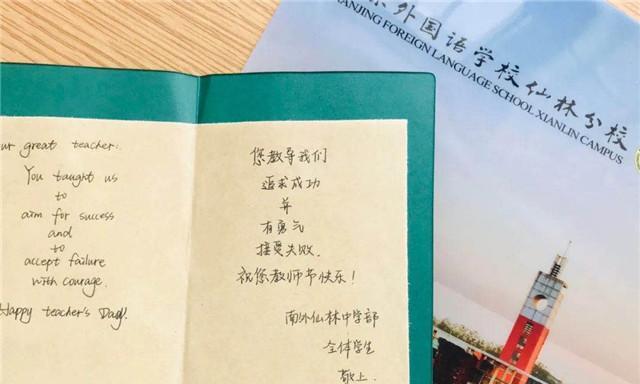 great teacher:
You taught us
to
aim for success
and
to
accept failure
with courage.
Happy teacher's Day!
您教导我们
追求成功
并
有勇气
接受失败.
祝您教师节快乐!
南外仙林中学部
全体学生
敬上.
外国语学校仙林分校
NANJING FOREIGN LANGUAGE SCHOOL XIANLIN CAMPUS